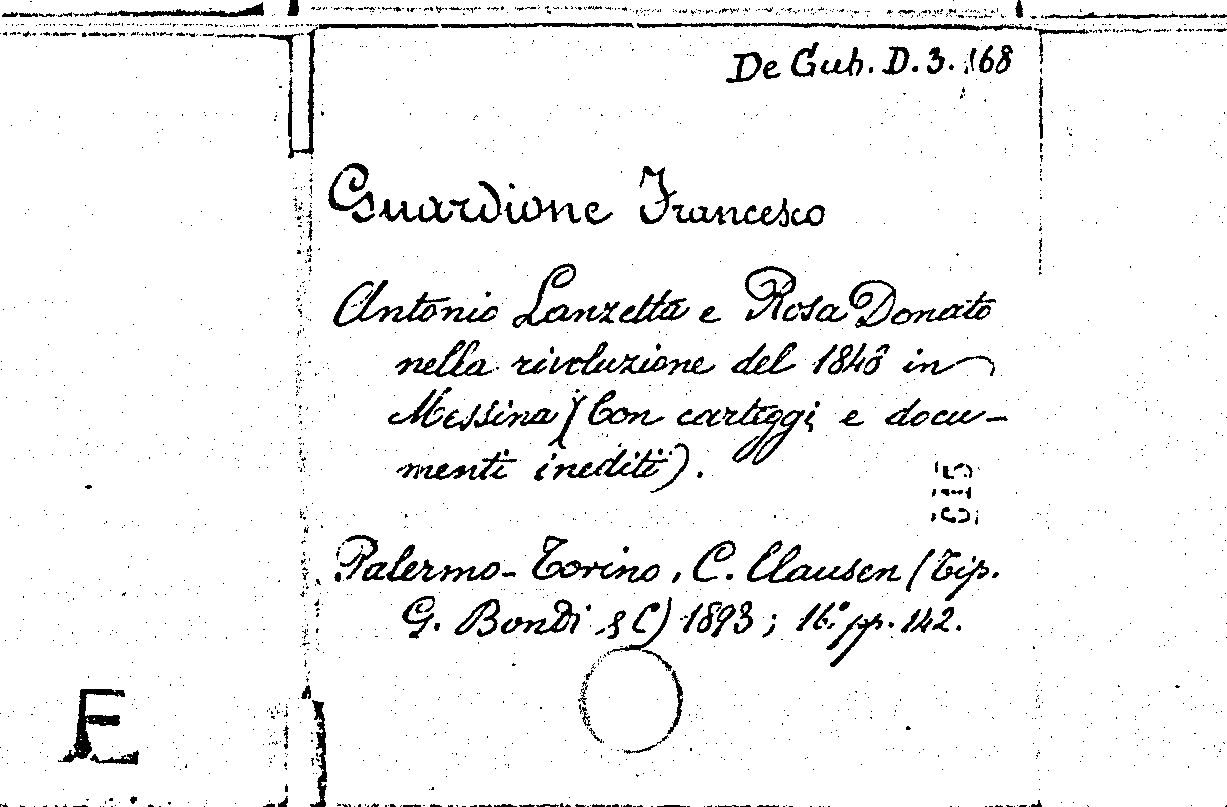 De Gub. D. 3. 168
Guardione Francesco
Antonio Lanzetta e Rosa Donato
nella rivoluzione del 1848 in
Messina (Con carteggi e docu-
menti inediti).
Palermo-Torino, C. Clausen (Tip.
G. Bondi & C) 1893; 16.° pp. 142.
E